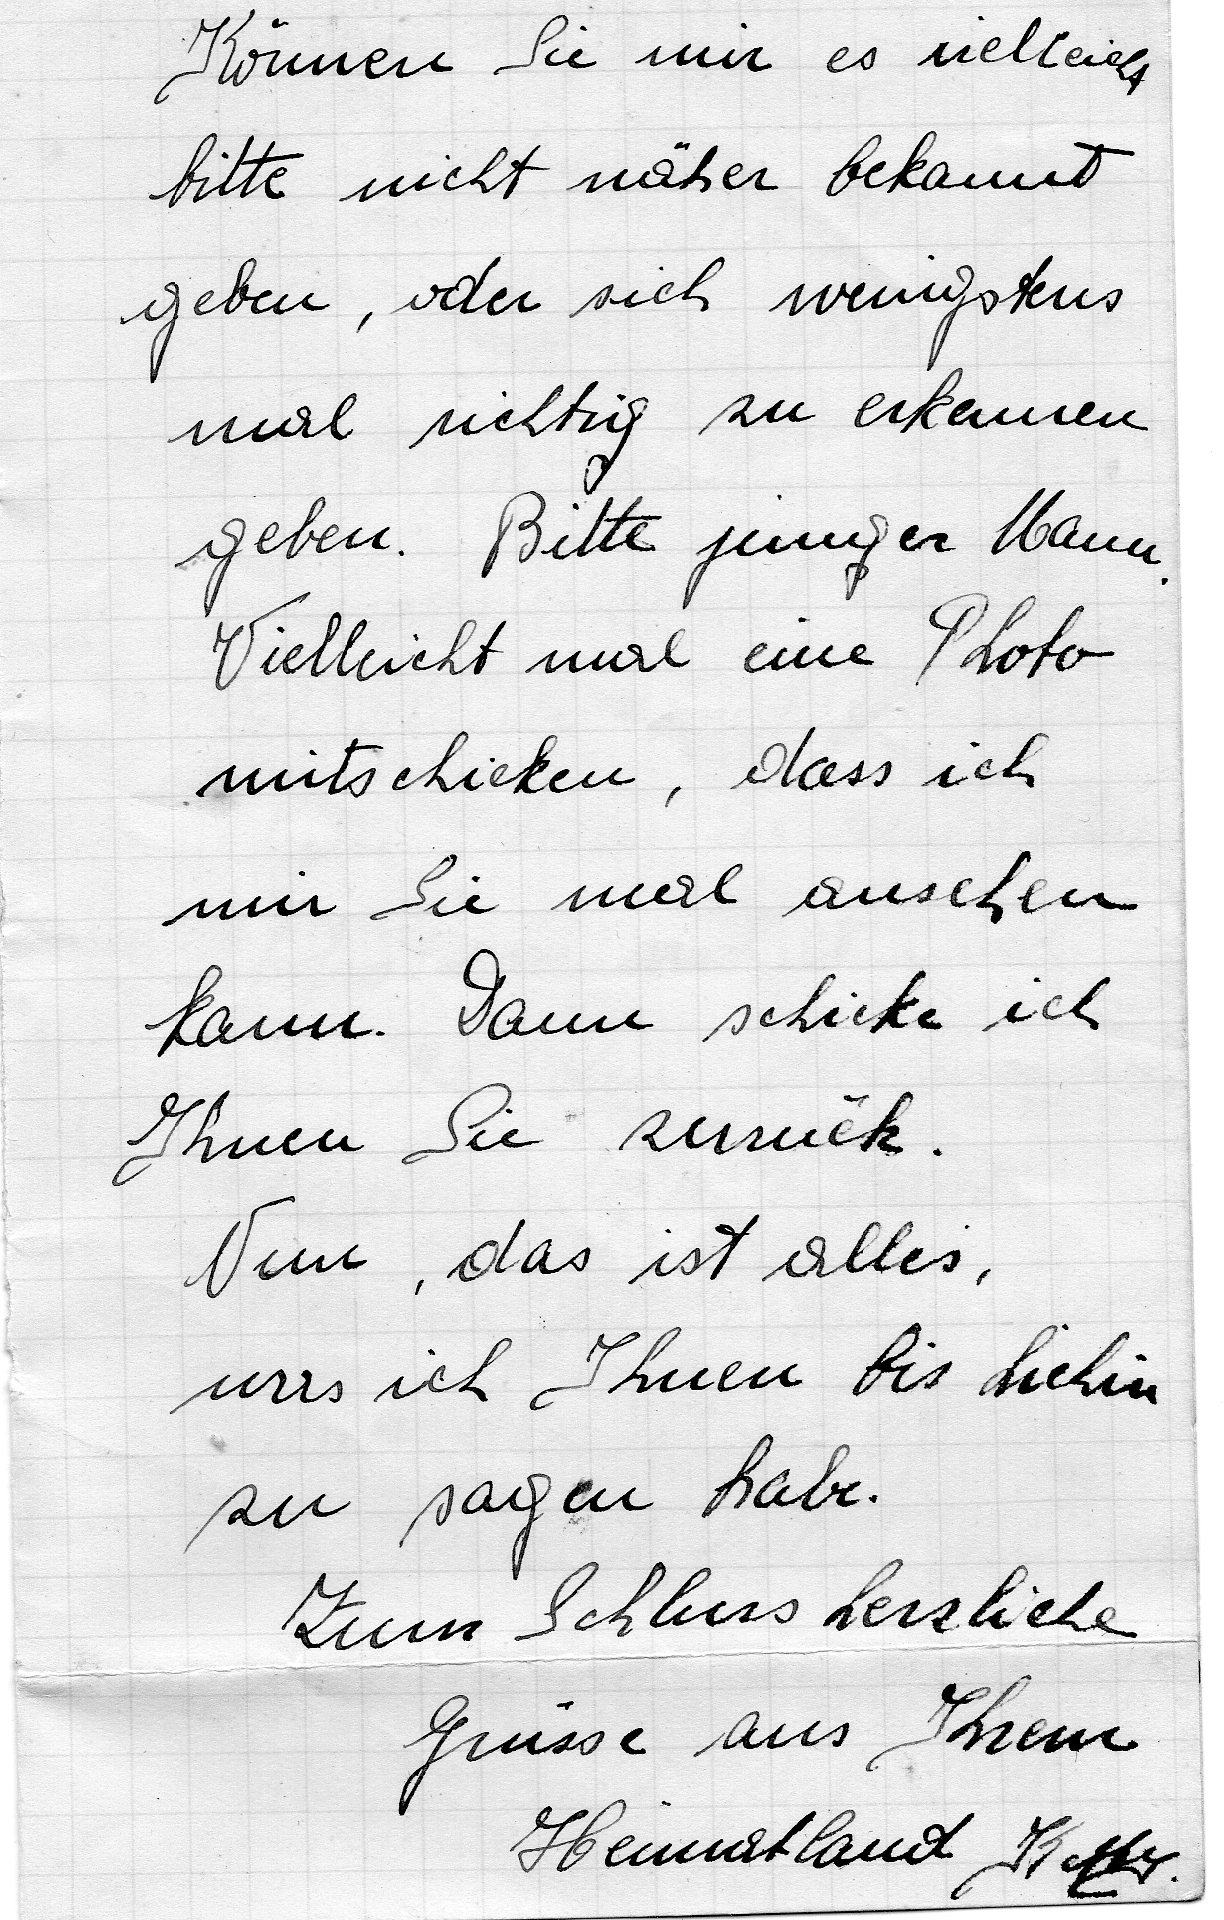 Können Sie mir es vielleicht
bitte nicht näher bekannt
geben, oder sich wenigstens
mal richtig zu erkennen
geben. Bitte junger Mann.
Vielleicht mal eine Photo
mitschicken, dass ich
mir Sie mal ansehen
kann. Dann schicke ich
Ihnen Sie zurück.
Nun, das ist alles,
was ich Ihnen bis hiehin
zu sagen habe.
Zum Schluss herzliche
Grüsse aus Ihrem
Heimatland